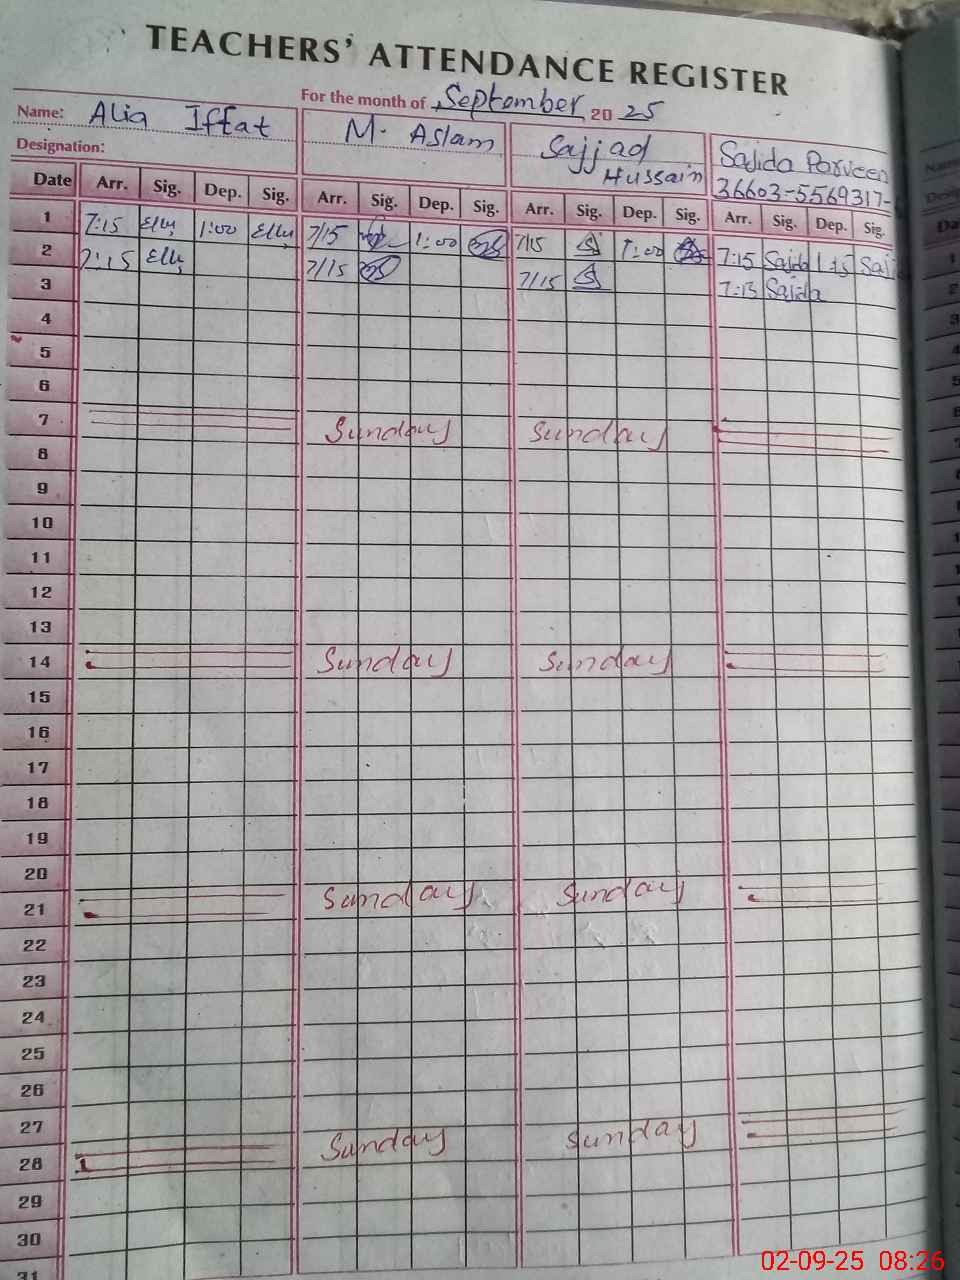 TEACHERS' ATTENDANCE REGISTER
For the month of September 2025
Name: Alia Iffat M. Aslam Sajjad Hussain Sajida Parveen
Designation: 36603-5569317-
Date Arr. Sig. Dep. Sig. Arr. Sig. Dep. Sig. Arr. Sig. Dep. Sig. Arr. Sig. Dep. Sig.
1 7:15 1:00 7/15 1:00 7/15 1:00 7:15 Sajida 1:15 Saji
2 7:15 7/15 7/15 7:15 Sajida
3
4
5
6
7 Sunday Sunday
8
9
10
11
12
13
14 Sunday Sunday
15
16
17
18
19
20
21 Sunday Sunday
22
23
24
25
26
27
28 Sunday Sunday
29
30
31
02-09-25 08:26